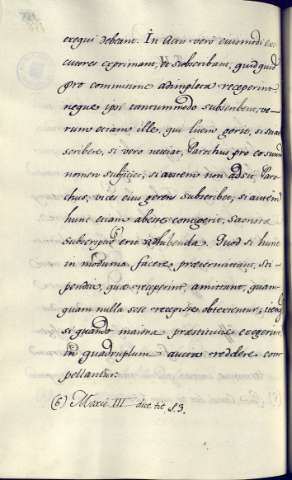 exequi debeant. In Actu vero eiusmodi Exe
cutores exprimant, et subscribant, quidquid
pro commune adimpleta receperint
neque ipsi tantummodo subscribent, ve-
rum etiam ille, qui litem gerit, si sciat
scribere, si vero nesciat, Parochus pro eo suum
nomen subjiciet, si autem non adsit Paro
chus, vices eius gerens subscribet, si autem
hunc etiam abesse contigerit, Sacrista
subscriptio erit adhibenda. Quod si hunc
in modum facere praetermittant, Sti-
pendia, quae receperint, amittant, quam
quam nulla sese recepisse obtestentur,
si quando maiora praestitutis exegerint,
in quadruplum aucta reddere com
pellantur:
(6) Tit. III. dict. tit. §.3.